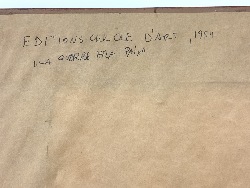 EDITIONS CERCLE D'ART, 1954
LA GUERRE ET LA PAIX